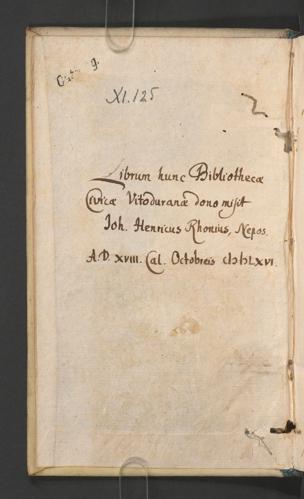 9.
XI.125
Librum hunc Bibliothecæ
Civicæ Vitoduranæ dono misit
Joh. Henricus Rhonius, Nepos.
A.D. XVIII. Cal. Octobreis